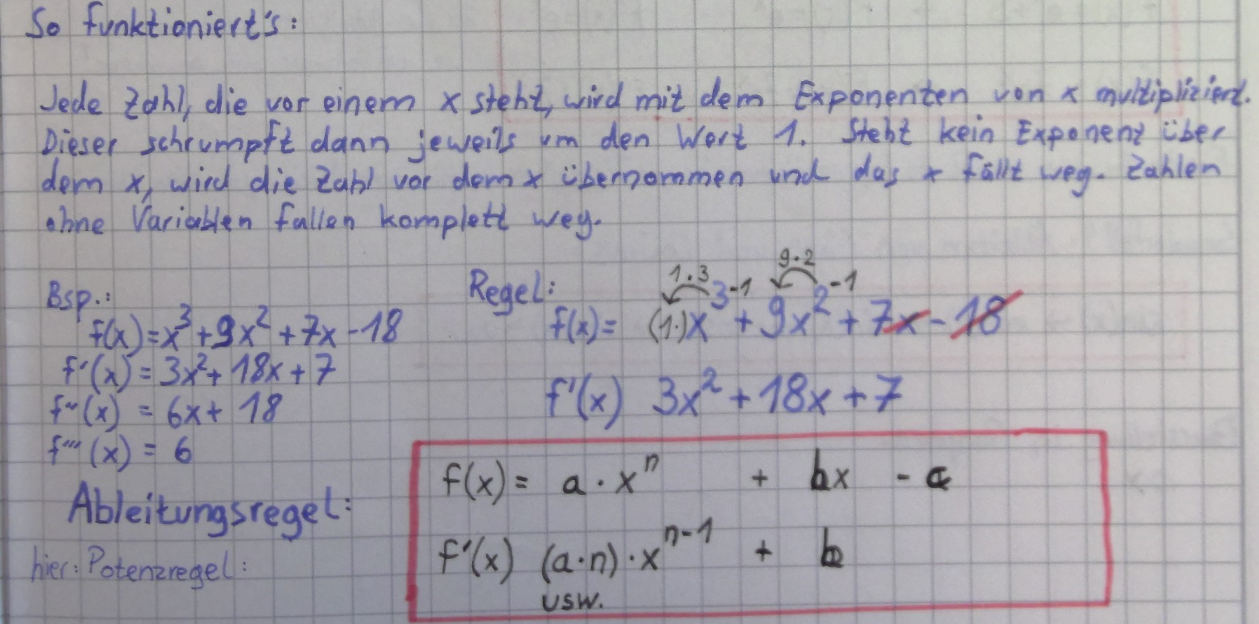 So funktioniert's:
Jede Zahl, die vor einem x steht, wird mit dem Exponenten von x multipliziert.
Dieser schrumpft dann jeweils um den Wert 1. Steht kein Exponent über
dem x, wird die Zahl vor dem x übernommen und das x fällt weg. Zahlen
ohne Variablen fallen komplett weg.
Bsp.:
f(x)=x³+9x²+7x-18
f'(x) = 3x²+18x+7
f''(x) = 6x+18
f'''(x) = 6
Regel:
1·3 9·2
f(x)= (1·)x³⁻¹+9x²⁻¹+7x-18
f'(x) 3x²+18x+7
Ableitungsregel:
hier: Potenzregel:
f(x)= a·xⁿ + bx - c
f'(x) (a·n)·xⁿ⁻¹ + b
usw.